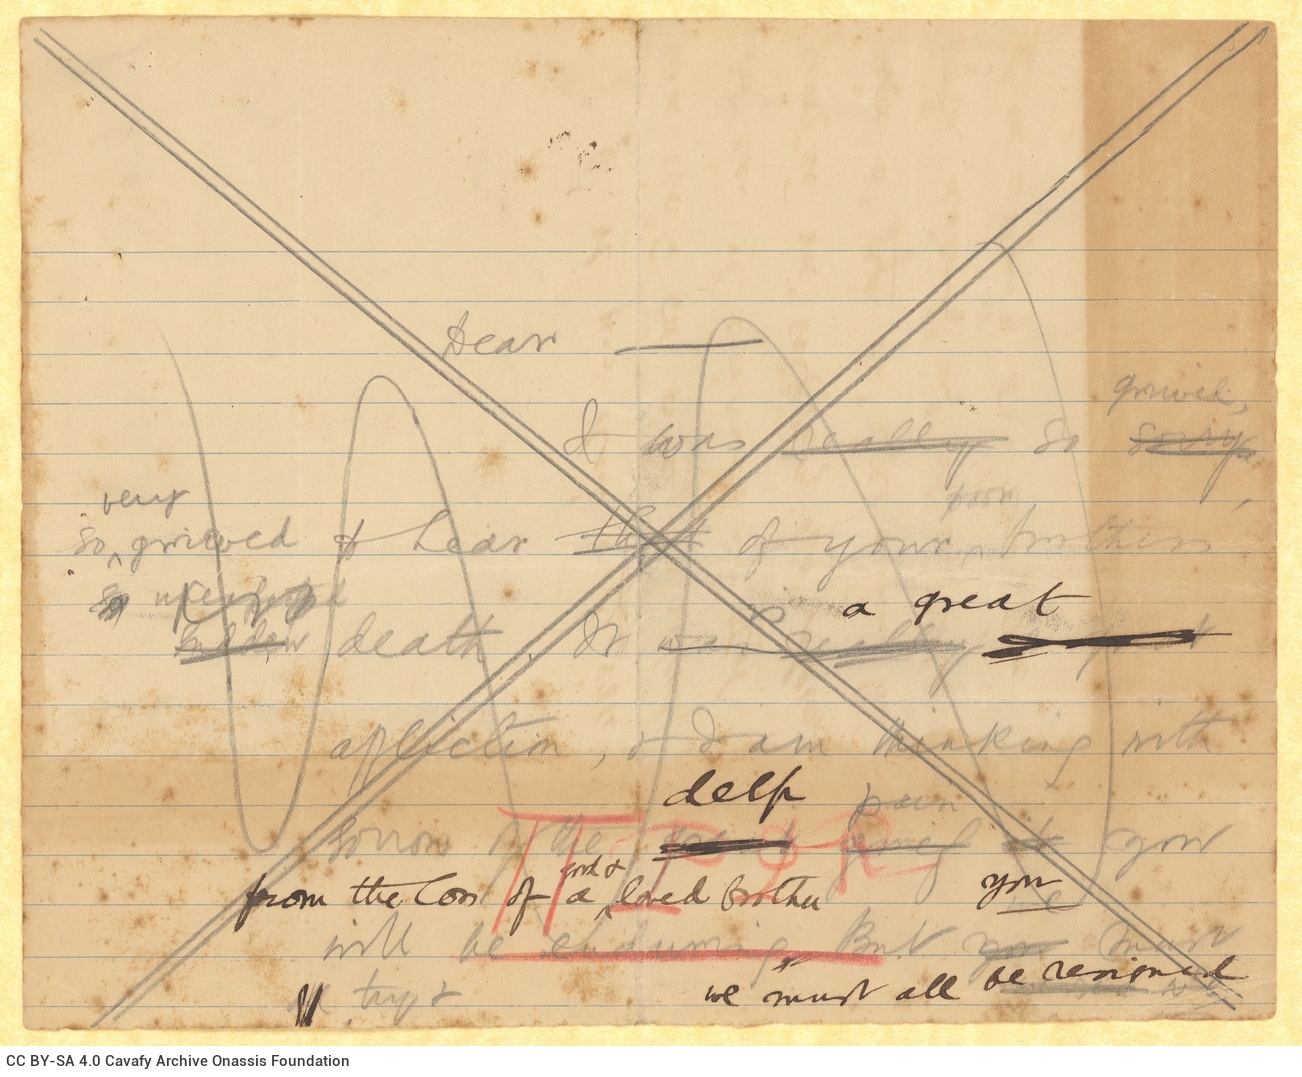 Dear
grieved,
I was really so sorry
very
poor
so grieved to hear that of your brother's
so unexpected
a great
sudden death It was really
affliction, & I am thinking with
deep pain
sorrow of the great grief it you
from the loss of a good & loved brother you
will be enduring. But you must
we must all be resigned
try &
CC BY-SA 4.0 Cavafy Archive Onassis Foundation